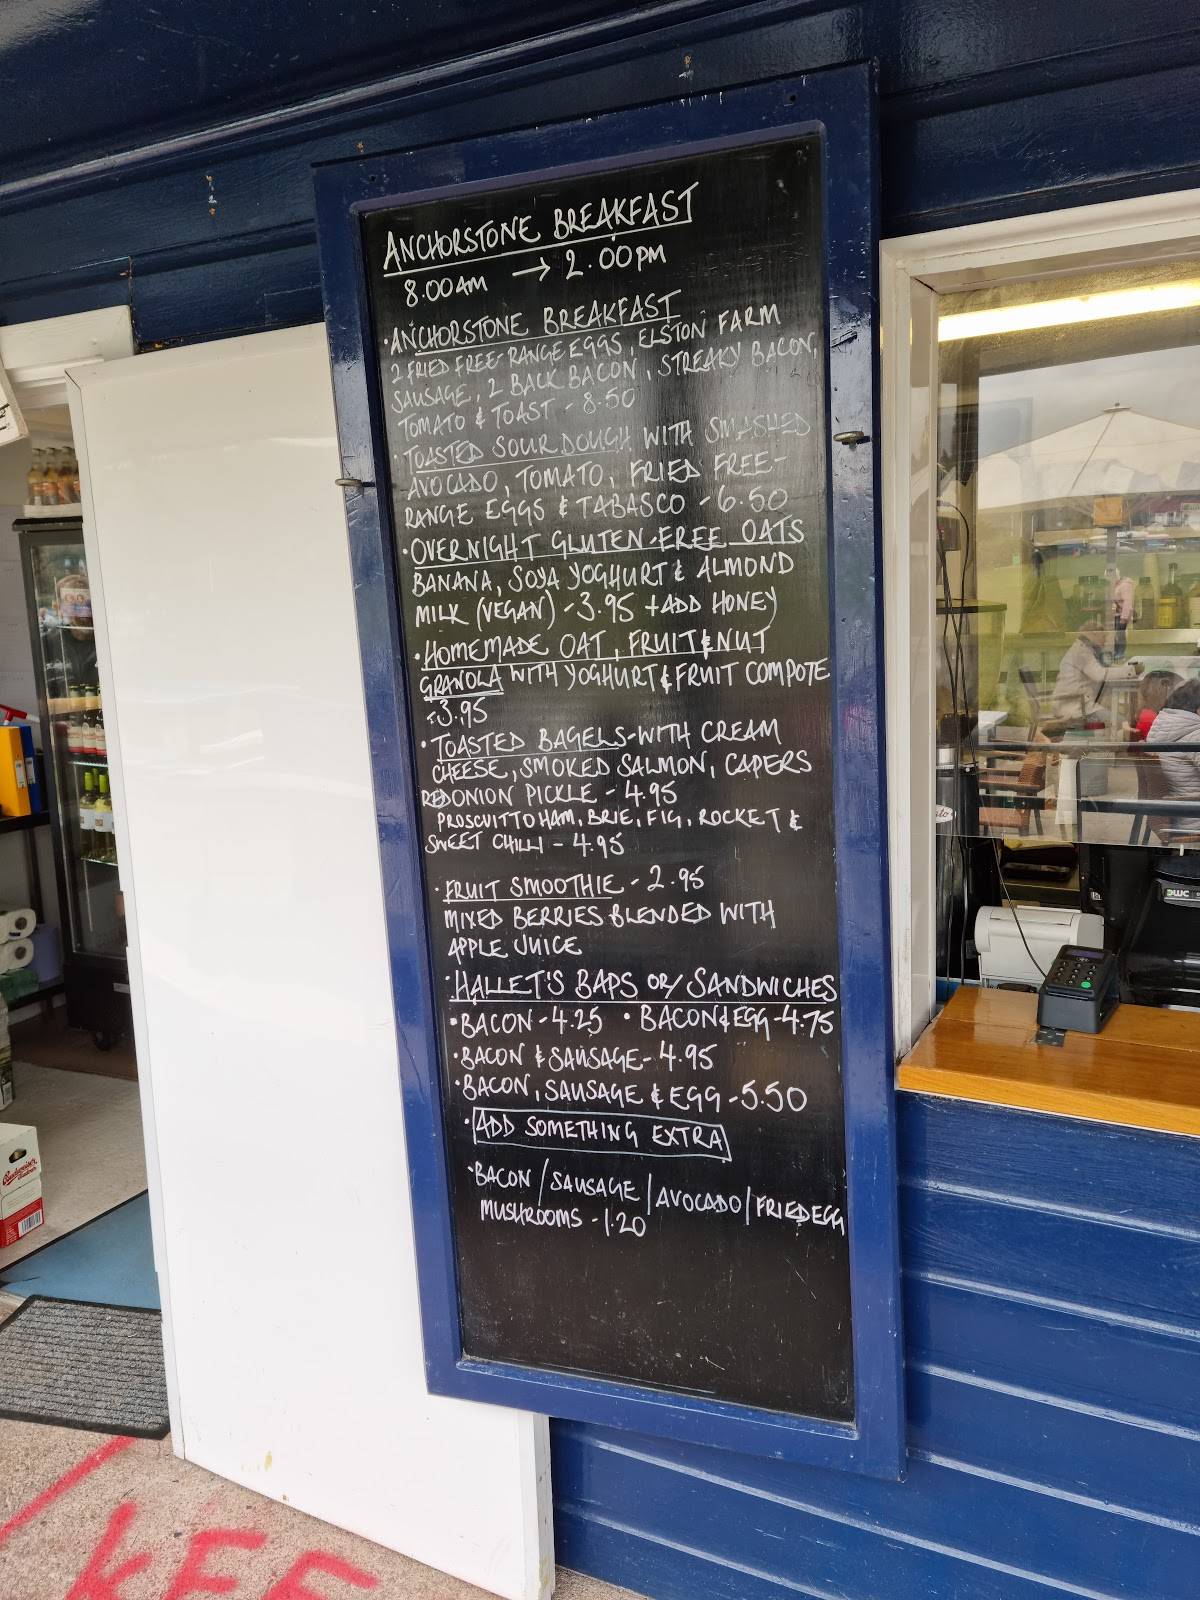 ANCHORSTONE BREAKFAST
8.00AM → 2.00PM
·ANCHORSTONE BREAKFAST
2 FRIED FREE-RANGE EGGS, ELSTON FARM
SAUSAGE, 2 BACK BACON, STREAKY BACON,
TOMATO & TOAST - 8.50
·TOASTED SOURDOUGH WITH SMASHED
AVOCADO, TOMATO, FRIED FREE-
RANGE EGGS & TABASCO - 6.50
·OVERNIGHT GLUTEN-FREE OATS
BANANA, SOYA YOGHURT & ALMOND
MILK (VEGAN) - 3.95 + ADD HONEY
·HOMEMADE OAT, FRUIT & NUT
GRANOLA WITH YOGHURT & FRUIT COMPOTE
- 3.95
·TOASTED BAGELS - WITH CREAM
CHEESE, SMOKED SALMON, CAPERS
RED ONION PICKLE - 4.95
PROSCUITTO HAM, BRIE, FIG, ROCKET &
SWEET CHILLI - 4.95
·FRUIT SMOOTHIE - 2.95
MIXED BERRIES BLENDED WITH
APPLE JUICE
·HALLET'S BAPS OR/ SANDWICHES
·BACON - 4.25 ·BACON & EGG - 4.75
·BACON & SAUSAGE - 4.95
·BACON, SAUSAGE & EGG - 5.50
·ADD SOMETHING EXTRA
·BACON / SAUSAGE / AVOCADO / FRIED EGG
MUSHROOMS - 1.20
Budweiser
DWC
KEE